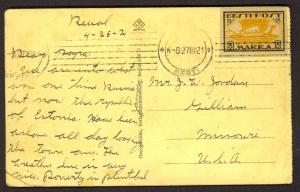 Reval
4-26-2
Dear Sara.
Am in what
was one time Russia
but now the republic
of Estonia. Have been
ashore all day looking
the town over. The
weather here is very
nice. Poverty is plentiful
EESTI POST
MARKA
EESTI
Mr. J. W. Jordan
Gilliam
Missouri
U.S.A